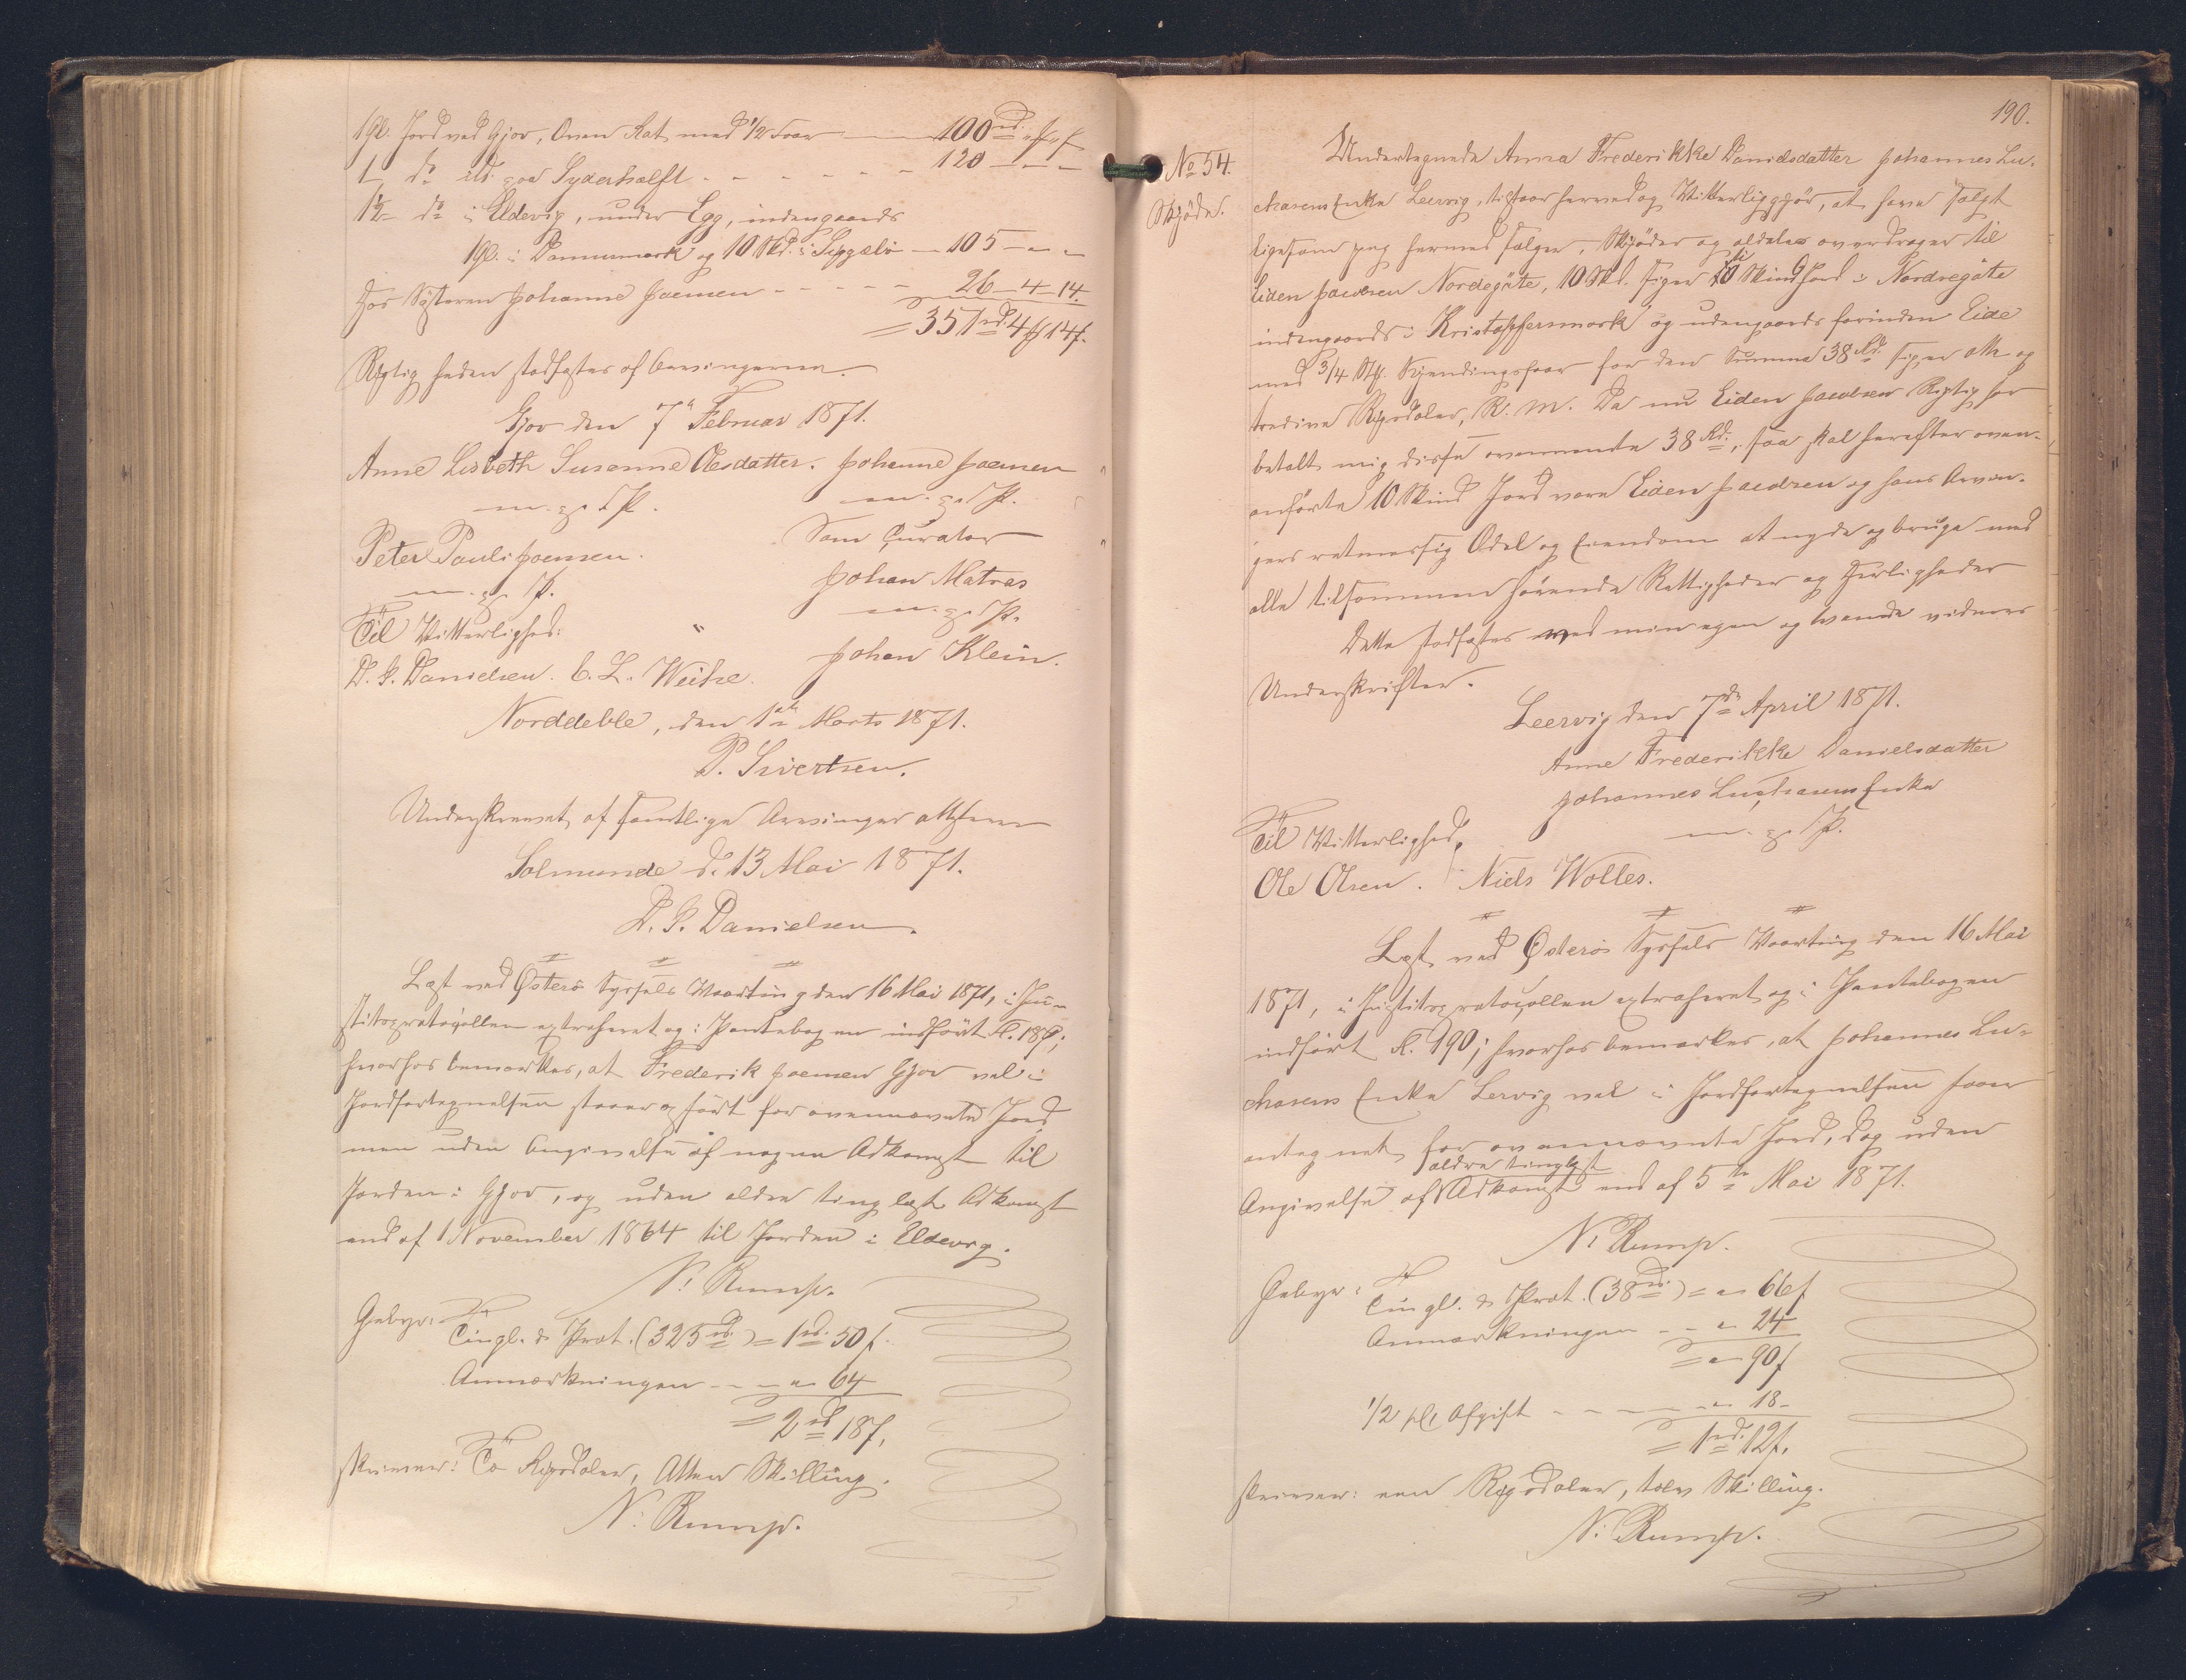 1 Gl. Jord ved Gjov, Oven Kat med 1/2 Soar 100 rd. " ß " f
1 - do itd. paa Syderhalft - - - - - - 120 - " - "
1 1/2 - do i Eldevig, under Egg, indengaards
1 Gl. i Dannemark og 10 Skd. i - 105 - " - "
Hos Søsteren Johanne Joensen - - - - - 26 - 4 - 14.
= 351 rd. 4 ß 14 f.
Rigtigheden stadfæstes af Arvingerne.
Gjov den 7de Februar 1871.
Anne Lisbeth Susanne Olesdatter. Johanne Joensen
m. f. P. m. f. P.
Peter Pauli Joensen. Som Curator
m. f. P. Johan Matras
Til Vitterlighed: " m. f. P.
D. P. Danielsen. C. L. Weihe. Johan Klein.
Norddeble, den 1ste Marts 1871.
P. Sivertsen.
Underskrevet af samtlige Arvinger attestere
Solmunde d. 13 Mai 1871.
D. P. Danielsen.
Læst ved Østerø Syssels Vaarting den 16 Mai 1871, i Ju-
stitsprotocollen extraheret og i Pantebogen indført Fl. 189;
hvorhos bemærkes, at Frederik Joensen Gjov vel i
Jordfortegnelsen staaer opført for ovennævnte Jord
men uden Angivelse af nogen Adkomst til
Jorden i Gjov, og uden ældre tinglæst Adkomst
end af 1 November 1864 til Jorden i Eldevig.
N. Rump.
Gebyr: Tingl. & Prot. (325 rd.) = 1 rd. 50 f.
Anmærkningen - - - " 64
= 2 rd 18 f.
skriver: To Rigsdaler, Atten Skilling.
N. Rump.
190.
No 54.
Skjøde.
Undertegnede Anna Frederikke Danielsdatter Johannes Lu-
chasens Enke Leervig, tilstaar herved og Vitterliggjör, at have solgt
ligesom jeg hermed sælger, Skjöder og aldeles overdrager til
Eiden Jacobsen Nordegöte, 10 Skd. siger ti 10 Skind Jord i Nordregöte
indengaards i Kristoffersmark og udengaards forinden Eide
med 3/4 Stk. Skjendingsfaar for den Summa 38 Rd. siger otte og
tredive Rigsdaler, R. M. Da nu Eiden Jacobsen Rigtig har
betalt mig disse ovenmeldte 38 Rd., saa skal herefter oven-
anförte 10 Skind Jord være Eiden Jacobsen og hans Arvin-
gers retmessig Odel og Eiendom at nyde og bruge med
alle tilsammen hörende Rettigheder og Herligheder
Dette stadfæstes med min egen og tvende vidners
Underskrifter.
Leervig den 7de April 1871.
Anne Frederikke Danielsdatter
Johannes Luchasens Enke
Til Vitterlighed. m. f. P.
Ole Olsen. Niels Wolles.
Læst ved Østerøs Syssels Vaarting den 16 Mai
1871, i Justitsprotocollen extraheret og i Pantebogen
indført Fl. 190; hvorhos bemærkes, at Johannes Lu-
chasens Enke Lervig vel i Jordfortegnelsen staaer
antegnet for ovennævnte Jord, dog uden
Angivelse af ældre tinglyst Adkomst end af 5te Mai 1871.
N. Rump.
Gebyr: Tingl. & Prot. (38 rd.) = " 66 f
Anmærkningen - - " 24
= " 90 f
1/2 pCt Afgift - - - - - " 18 -
= 1 rd. 12 f.
skriver: een Rigsdaler, tolv Skilling.
N. Rump.